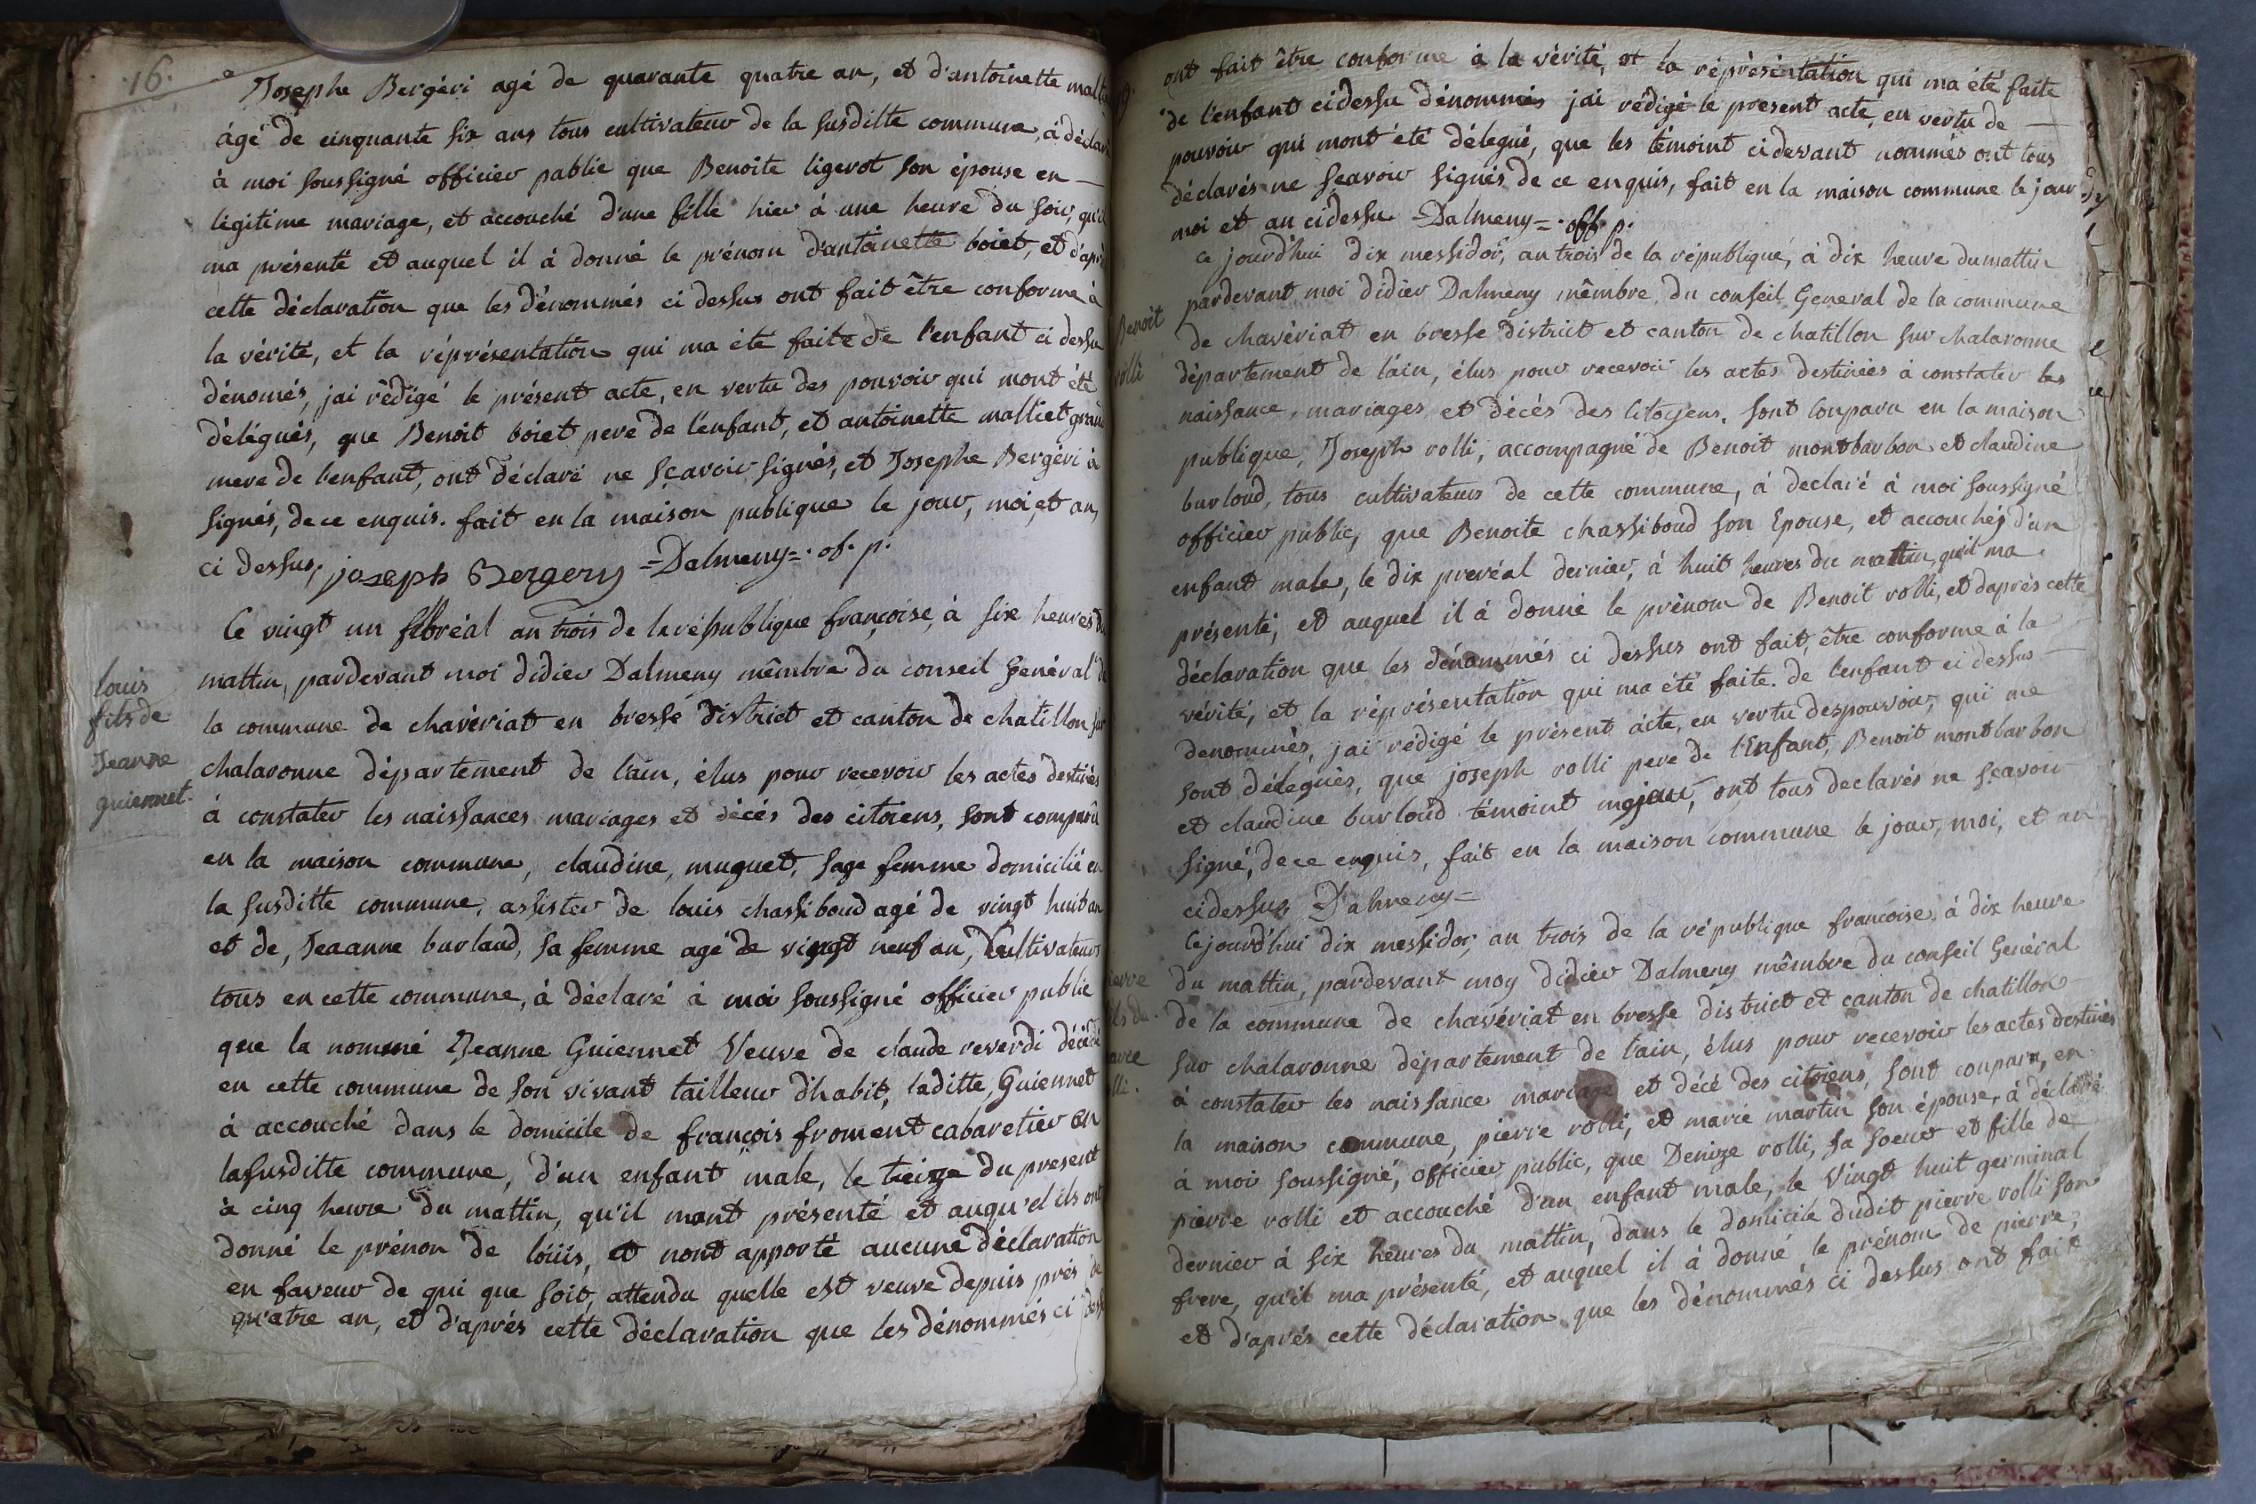 16.
Josephe Bergéri agé de quarante quatre an, et d'antoinette
ágé de cinquante six ans tous cultivateur de la susditte commune, á déclaré
à moi soussigné officier public que Benoite ligerot son épouse en —
légitime mariage, et accouché d'une fille hier á une heure du soir, qu'il
ma présenté et auquel il á donné le prénom d'antoinette boiet, et d'après
cette déclaration que les dénommés ci dessus ont fait être conforme à
la vérité, et la réprésentation qui ma été faite de l'enfant ci dessu
dénomés, jai rêdigé le présent acte, en vertu des pouvoir qui mont été
délégués, que Benoit boiet pere de l'enfant, et antoinette malliet grand
mere de l'enfant, ont déclaré ne sçavoir signés, et Josephe Bergéri à
signés, de ce enquis. fait en la maison publique le jour, moi, et an,
ci dessus, joseph Bergery =Dalmeny=. of. p.
louis
fils de
Jeanne
guiennet.
Ce vingt un floréal an trois de la république françoise, à six heures du
mattin, pardevant moi didier Dalmeny mêmbre du conseil général de
la commune de chavèriat en bresse district et canton de chatillon sur
chalaronne département de l'ain, élus pour recevoir les actes destinés
à constater les naissances mariages et décés des citoiens, sont comparû
en la maison commune, claudine, muguet, sage femme domicilié en
la susditte commune, assister de louis chassiboud agé de vingt huit an
et de, Jeaanne burlaud, sa femme agé de vingt neuf an, cultivateurs
tous en cette commune, à déclaré à moi soussigné officier public
que la nommé Jeanne Guiennet Veuve de claude reverdi décédé
en cette commune de son vivant tailleur d'habit, laditte, Guiennet
á accouché dans le domicile de françois froment cabaretier en
la susditte commune, d'un enfant male, le treize du present
à cinq heure du mattin, qu'il mont présenté et auqu'el ils ont
donné le prénon de loüis, et nont apporté aucune déclaration
en faveur de qui que soit, attendu quelle est veuve depuis prés de
quatre an, et d'aprés cette déclaration que les dénommés ci dessu
ont fait être conforme à la vérité, et la réprèsentation qui ma été faite
de l'enfant cidessu dénommés jai rédigé le present acte, en vertu de —
pouvoir qui mont été délegué, que les témoint cidevant nommés ont tous
déclarés ne sçavoir signés de ce enquis, fait en la maison commune le jour
moi et an cidessu =Dalmeny=. off. p.
Benoit
rolli
ce jourd'hui dix messidor, an trois de la république, à dix heure du mattin
pardevant moi didier Dalmeny mêmbre du conseil General de la commune
de chavèriat en bresse district et canton de chatillon sur chalaronne
département de l'ain, élus pour recevoir les actes destinées à constater les
naissance, mariages et décés des Citoyens. sont Comparu en la maison
publique, Joseph rolli, accompagné de Benoit montbarbon et claudine
burloud, tous cultivateurs de cette commune, á declaré à moi soussigné
officier public, que Benoite chassiboud son Epouse, et accouchés d'un
enfant male, le dix preréal dernier, à huit heures du mattin, qu'il ma
présenté, et auquel il à donné le prénom de Benoit rolli, et daprés cette
déclaration que les dénommés ci dessus ont fait, être conforme à la
vérité, et la réprésentation qui ma été faite. de l'enfant ci dessus —
denommés, jai rédigé le présent acte, en vertu des pouvoir, qui me
sont délegués, que joseph rolli pere de l'Enfant, Benoit montbarbon
et claudine burloud témoint majeur, ont tous declarés ne sçavoir
signé, de ce enquis, fait en la maison commune le jour, moi, et an
cidessus, Dalmeny=
Ce jourd'hui dix messidor, an trois de la république francoise, á dix heure
du mattin, pardevant moy didier Dalmeny mêmbre du conseil Genéral
de la commune de chavériat en bresse district et canton de chatillon
sur chalaronne département de l'ain, élus pour recevoir les actes destinés
à constater les naissance mariage et décé des citoiens, sont conparu, en
la maison commune, pierre rolli, et marie martin son épouse, á déclaré
á moi soussigné, officier public, que Denize rolli, sa soeur et fille de
pierre rolli et accouché d'un enfant male, le Vingt huit germinal
dernier á six heures du mattin, dans le domicile dudit pierre rolli son
frere, qu'il ma présenté, et auquel il à donné le prénom de pierre,
et d'aprés cette déclaration que les dénommés ci dessus ont fait